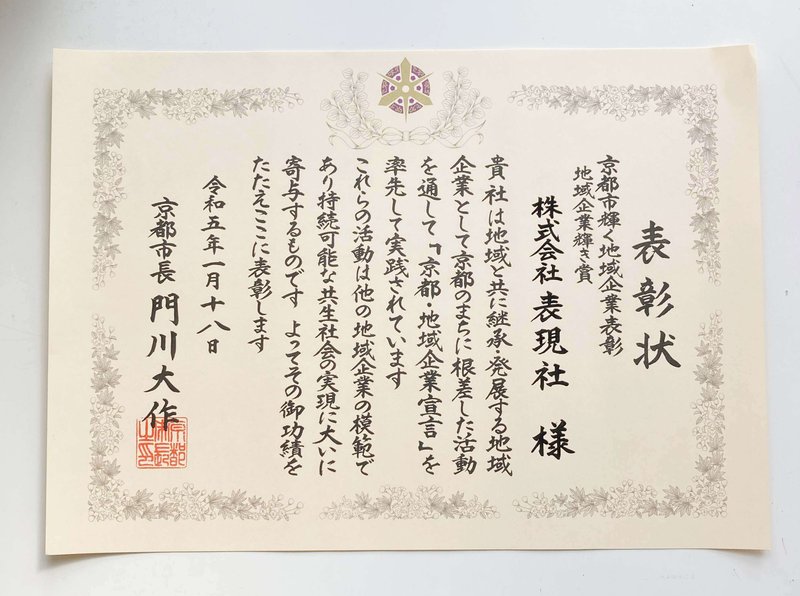 表彰状
京都市輝く地域企業表彰
地域企業輝き賞
株式会社 表現社 様
貴社は地域と共に継承・発展する地域
企業として京都のまちに根差した活動
を通して「京都・地域企業宣言」を
率先して実践されています
これらの活動は他の地域企業の模範で
あり持続可能な共生社会の実現に大いに
寄与するものです よってその御功績を
たたえここに表彰します
令和五年一月十八日
京都市長 門川大作
京都市長之印